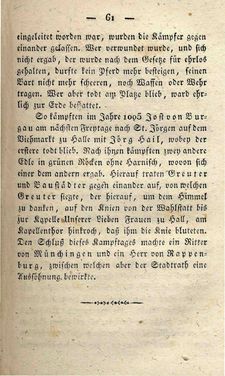 — 61 —
eingeleitet worden war, wurden die Kämpfer gegen
einander gelassen. Wer verwundet wurde, und sich
nicht ergab, der wurde nach dem Gesetz für ehrlos
gehalten, durfte kein Pferd mehr besteigen, seinen
Bart nicht mehr scheeren, noch Waffen oder Wehr
tragen. Wer aber todt am Platze blieb, ward ehr-
lich zur Erde bestattet.
So kämpften im Jahre 1005 Jost von Bur-
gau am nächsten Freytage nach St. Jörgen auf dem
Viehmarkt zu Hall mit Jörg Hail, wobey der
erstere todt blieb. Nach ihnen kämpften zwey andere
Edle in grünen Röcken ohne Harnisch, wovon sich
einer dem andern ergab. Hierauf traten Greuter
und Baustädter gegen einander auf, von welchen
Greuter siegte, der hierauf, um dem Himmel
zu danken, auf den Knien von der Wahlstatt bis
zur Kapelle Unserer Lieben Frauen zu Hall, am
Kapellenthor hinkroch, daß ihm die Knie bluteten.
Den Schluß dieses Kampftages machte ein Ritter
von Münchingen und ein Herr von Rappen-
burg, zwischen welchen aber der Stadtrath eine
Aussöhnung bewirkte.